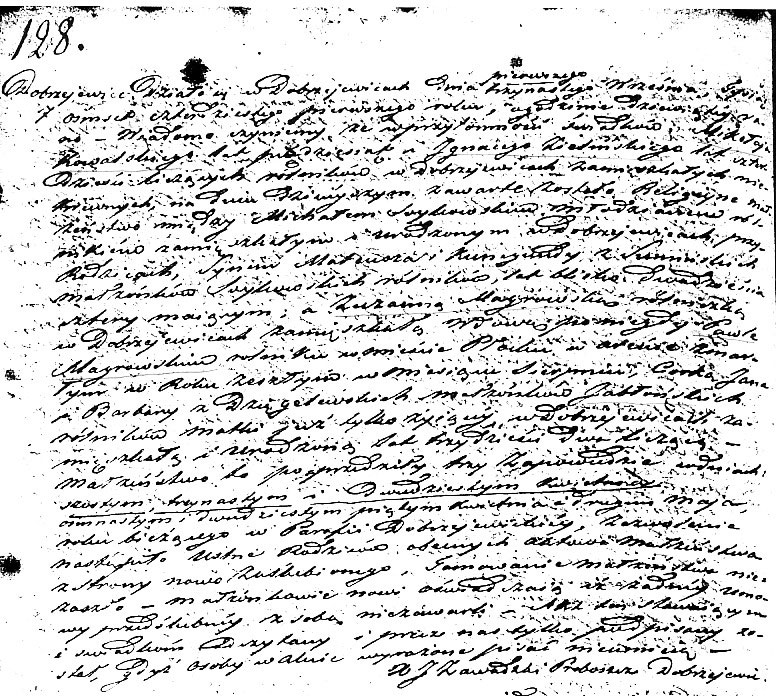 128.
pierwszego
Dobrzejewice Działo się w Dobrzejewicach dnia trzynastego Września, tysiąc
osmset czterdziestego pierwszego roku, o godzinie dziewiątej
no – Wiadomo czynimy, że w przytomności świadków, Mikołaja
Kowalskiego lat pięćdziesiąt a Ignacego Zielińskiego lat czter
dzieści liczących rolników w Dobrzejewicach zamieszkałych
na dniu dzisiejszym zawarte zostało Religijne mał
żeństwo między Michałem młodzianem rol
nikiem zamieszkałym i urodzonym w Dobrzejewicach, przy
Rodzicach, Synem Mateusza i Kunegundy z
małżonków rolników, lat blisko dwadzieścia
cztery mającym, a Zuzanną Magrowską rolniczką
w Dobrzejewicach zamieszkałą wdową po niegdy Pawle
Magrowskim rolniku w mieście Płocku w zmar
łym w Roku zeszłym w miesiącu Sierpniu, Córką Jana
i Barbary z małżonków Jabłońskich
rolników matki już tylko żyjącej, w Dobrzejewicach za
mieszkałą i urodzoną lat trzydzieści dwa liczącą –
Małżeństwo to poprzedziły trzy Zapowiedzie w dniach
szóstym trzynastym i dwudziestym kwietnia
ośmnastym, dwudziestym piątym kwietnia i drugim maja,
roku bieżącego w Parafii Dobrzejewickiej, Zezwolenie
nastąpiło ustne Rodziców obecnych aktowi małżeństwa
z strony nowo zaślubionego, Tamowanie małżeństwa nie
zaszło – małżonkowie nowi oświadczają iż żadnej umo
wy przedślubnej z sobą nie zawarli – Akt ten stawającym
i świadkom odczytany i przez nas tylko podpisany zo
stał, gdyż osoby w akcie wyrażone pisać nieumieją –
X J Zawadzki Proboszcz Dobrzejewi.